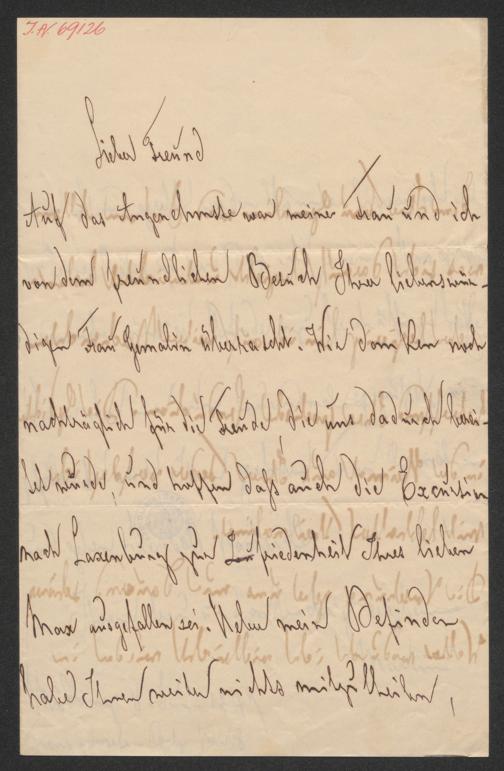 I.N. 69126
Lieber Freund
Auf das Angenehmste war meine Frau und ich
von dem freundlichen Besuch Ihrer liebenswür-
digen Frau Gemalin überrascht. Wir danken noch
nachträglich für die Freude, die uns dadurch berei-
tet wurde, und hoffen daß auch die Excursion
nach Laxenburg zur Zufriedenheit Ihres lieben
Max ausgefallen sei. Ueber mein Befinden
habe Ihnen weiter nichts mitzutheilen,